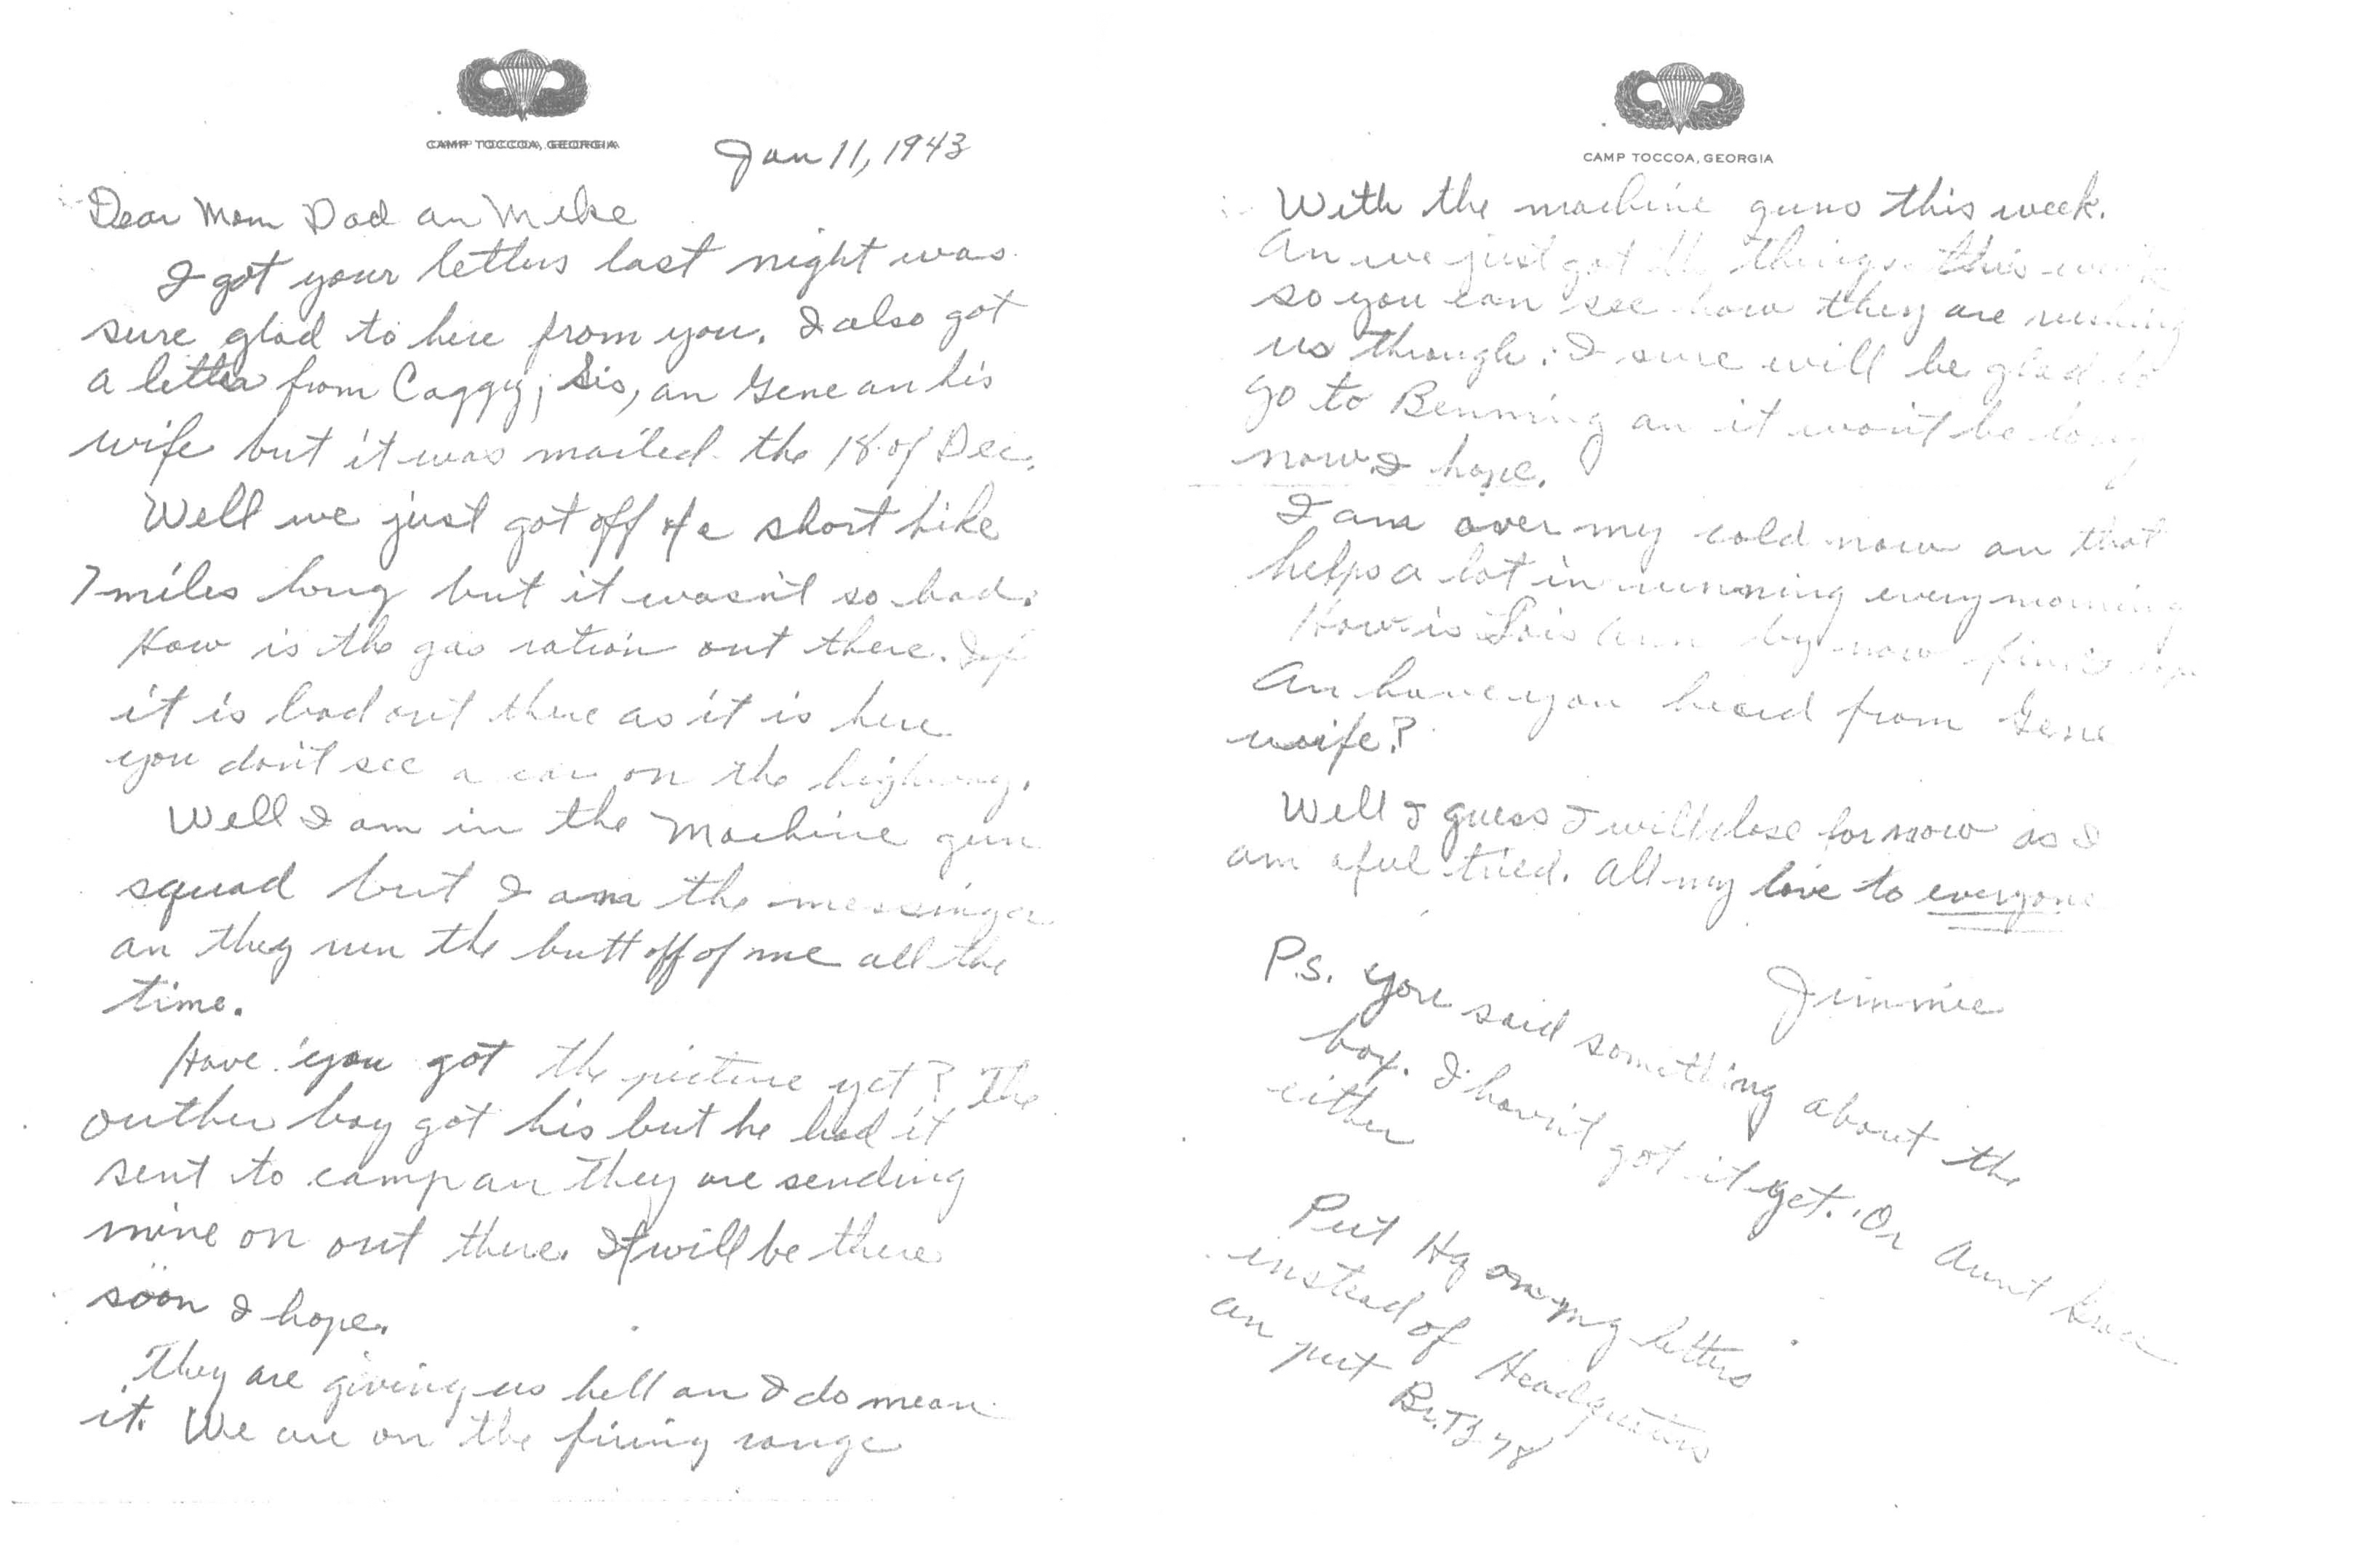 CAMP TOCCOA, GEORGIA
Jan 11, 1943
Dear Mom Dad an Mike
I got your letters last night was
sure glad to here from you. I also got
a letter from Caggy, Sis, an Gene an his
wife but it was mailed the 18 of Dec.
Well we just got off of a short hike
7 miles long but it wasn't so bad.
How is the gas ration out there. If
it is bad out there as it is here
you don't see a car on the highway.
Well I am in the Machine gun
squad but I am the messinger
an they run the butt off of me all the
time.
Have you got the picture yet? The
outher boy got his but he had it
sent to camp an they are sending
mine on out there. It will be there
soon I hope.
They are giving us hell an I do mean
it. We are on the firing range
CAMP TOCCOA, GEORGIA
With the machine guns this week.
An we just got the things this week
so you can see how they are rushing
us through. I sure will be glad to
go to Benning an it won't be long
now I hope.
I am over my cold now an that
helps a lot in running every morning
How is Lois Ann by now fine I hope
An have you heard from Gene
wife?
Well I guess I will close for now as I
am aful tried. All my love to everyone
Jimmie
P.S. You said something about the
box. I haven't got it yet. Or Aunt
either
Put Hq on my letters
instead of Headquters
an put Br. T3